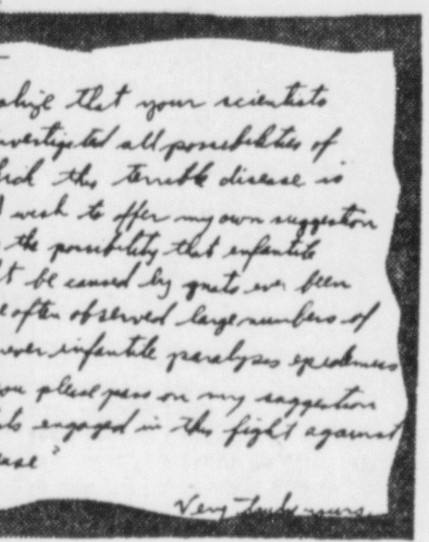 alize that your scientists
nvestigated all possibilities of
hich this terrible disease is
I wish to offer my own suggestion
the possibility that infantile
t be caused by gnats ever been
e often observed large numbers of
ever infantile paralysis epidemics
ou please pass on my suggestion
sts engaged in this fight against
ease?
Very truly yours,